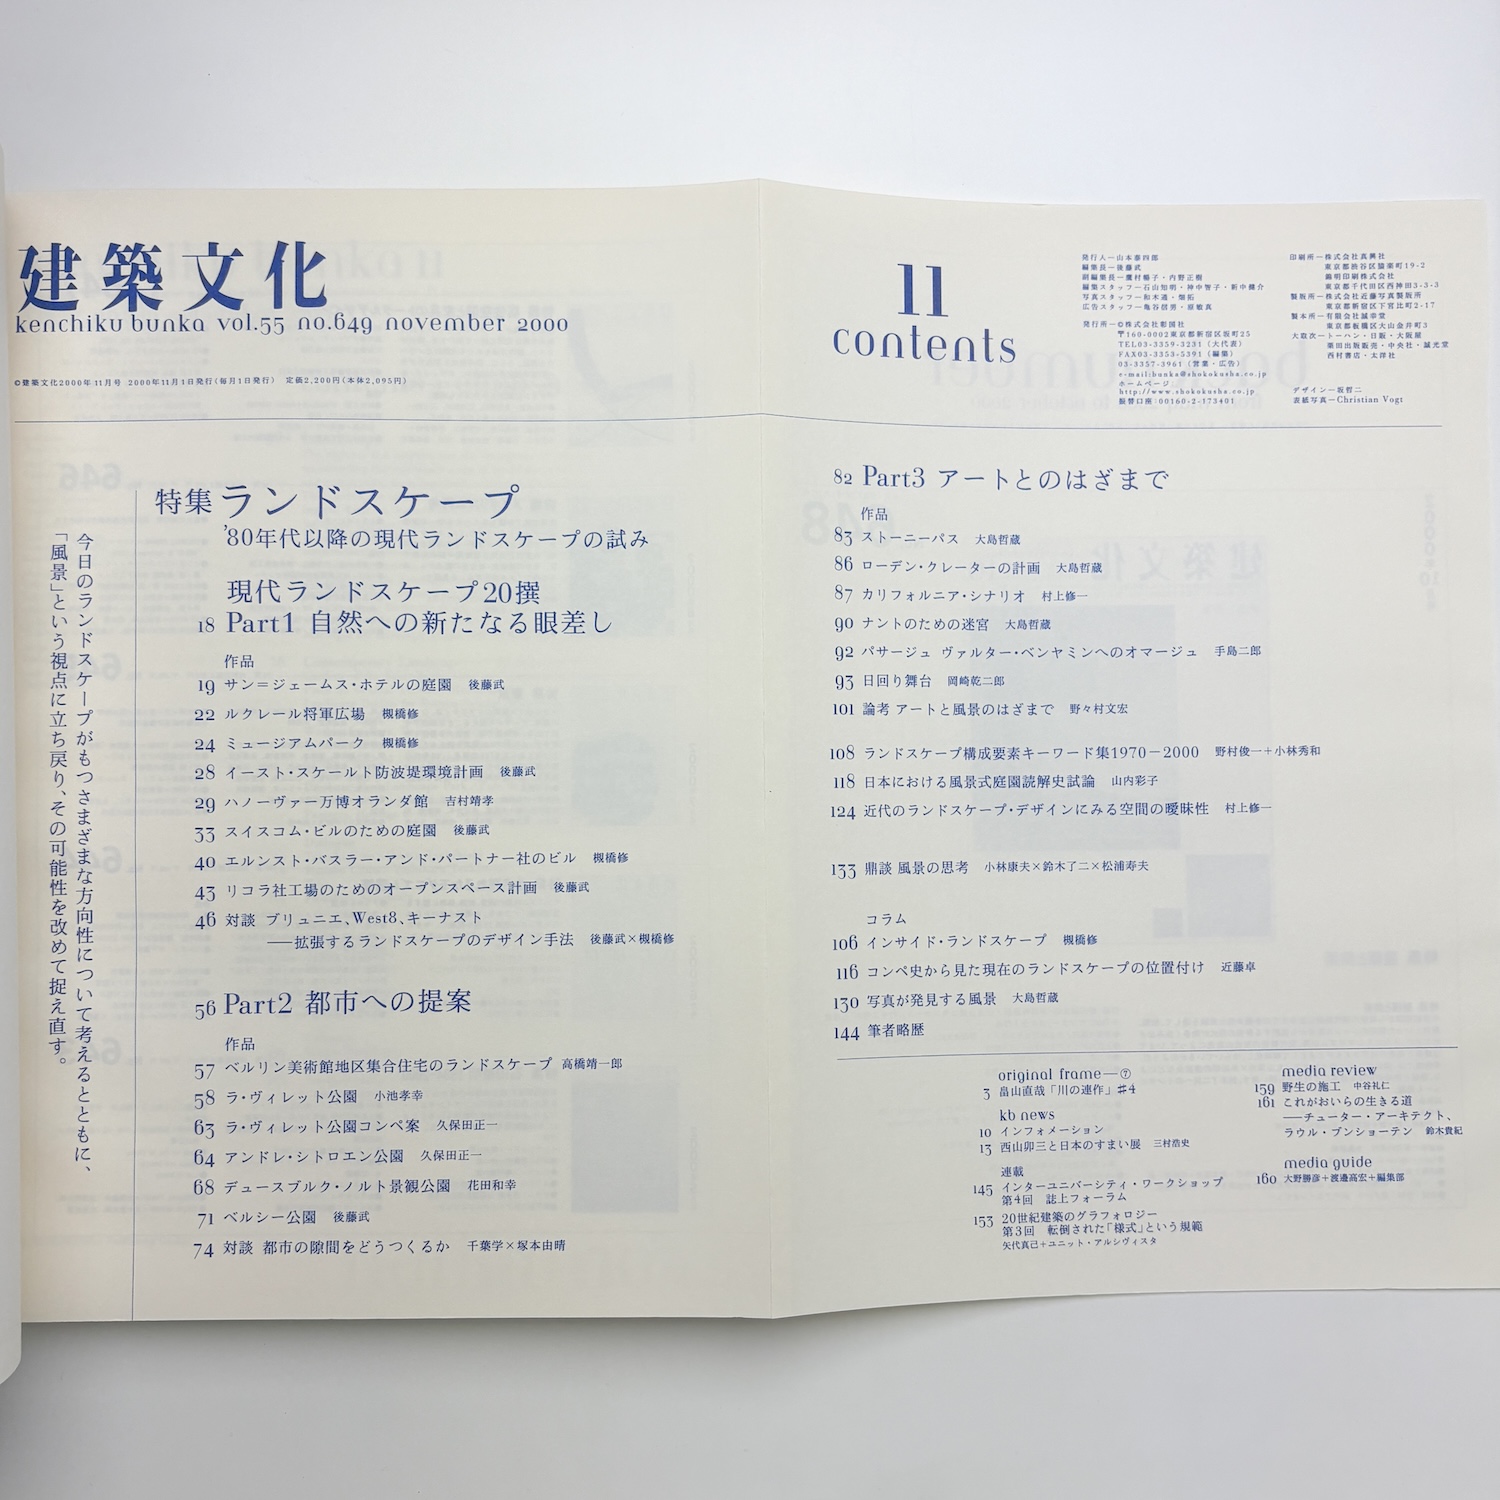 建築文化
kenchiku bunka vol.55 no.649 november 2000
©建築文化2000年11月号 2000年11月1日発行(毎月1日発行) 定価2,200円(本体2,095円)
今日のランドスケープがもつさまざまな方向性について考えるとともに、
「風景」という視点に立ち戻り、その可能性を改めて捉え直す。
特集 ランドスケープ
'80年代以降の現代ランドスケープの試み
現代ランドスケープ20撰
18 Part1 自然への新たなる眼差し
作品
19 サン=ジェームス・ホテルの庭園 後藤武
22 ルクレール将軍広場 槻橋修
24 ミュージアムパーク 槻橋修
28 イースト・スケールト防波堤環境計画 後藤武
29 ハノーヴァー万博オランダ館 吉村靖孝
33 スイスコム・ビルのための庭園 後藤武
40 エルンスト・バスラー・アンド・パートナー社のビル 槻橋修
43 リコラ社工場のためのオープンスペース計画 後藤武
46 対談 ブリュニエ、West8、キーナスト
——拡張するランドスケープのデザイン手法 後藤武×槻橋修
56 Part2 都市への提案
作品
57 ベルリン美術館地区集合住宅のランドスケープ 高橋靖一郎
58 ラ・ヴィレット公園 小池孝幸
63 ラ・ヴィレット公園コンペ案 久保田正一
64 アンドレ・シトロエン公園 久保田正一
68 デュースブルク・ノルト景観公園 花田和幸
71 ベルシー公園 後藤武
74 対談 都市の隙間をどうつくるか 千葉学×塚本由晴
11
contents
発行人—山本泰四郎
編集長—後藤武
副編集長—鷹村暢子・内野正樹
編集スタッフ—石山知明・神中智子・新中健介
写真スタッフ—和木通・畑拓
広告スタッフ—亀谷信男・原敏真
発行所—©株式会社彰国社
〒160-0002東京都新宿区坂町25
TEL03-3359-3231(大代表)
FAX03-3353-5391(編集)
03-3357-3961(営業・広告)
e-mail:bunka@shokokusha.co.jp
ホームページ
http://www.shokokusha.co.jp
振替口座:00160-2-173401
印刷所—株式会社真興社
東京都渋谷区猿楽町19-2
錦明印刷株式会社
東京都千代田区西神田3-3-3
製版所—株式会社近藤写真製版所
東京都新宿区下宮比町2-17
製本所—有限会社誠幸堂
東京都板橋区大山金井町3
大取次—トーハン・日販・大阪屋
栗田出版販売・中央社・誠光堂
西村書店・太洋社
デザイン—坂哲二
表紙写真—Christian Vogt
82 Part3 アートとのはざまで
作品
83 ストーニーパス 大島哲蔵
86 ローデン・クレーターの計画 大島哲蔵
87 カリフォルニア・シナリオ 村上修一
90 ナントのための迷宮 大島哲蔵
92 パサージュ ヴァルター・ベンヤミンへのオマージュ 手島二郎
93 日回り舞台 岡﨑乾二郎
101 論考 アートと風景のはざまで 野々村文宏
108 ランドスケープ構成要素キーワード集1970-2000 野村俊一+小林秀和
118 日本における風景式庭園読解史試論 山内彩子
124 近代のランドスケープ・デザインにみる空間の曖昧性 村上修一
133 鼎談 風景の思考 小林康夫×鈴木了二×松浦寿夫
コラム
106 インサイド・ランドスケープ 槻橋修
116 コンペ史から見た現在のランドスケープの位置付け 近藤卓
130 写真が発見する風景 大島哲蔵
144 筆者略歴
original frame—⑦
3 畠山直哉「川の連作」#4
kb news
10 インフォメーション
13 西山夘三と日本のすまい展 三村浩史
連載
145 インターユニバーシティ・ワークショップ
第4回 誌上フォーラム
153 20世紀建築のグラフォロジー
第3回 転倒された「様式」という規範
矢代真己+ユニット・アルシヴィスタ
media review
159 野生の施工 中谷礼仁
161 これがおいらの生きる道
——チューター・アーキテクト、
ラウル・ブンショーテン 鈴木貴紀
media guide
160 大野勝彦+渡邊高宏+編集部